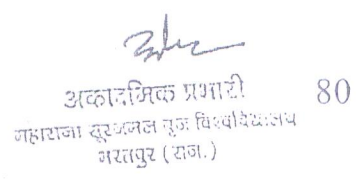 अकादमिक प्रभारी 80
महाराजा सूरजमल बृज विश्वविद्यालय
भरतपुर (राज.)